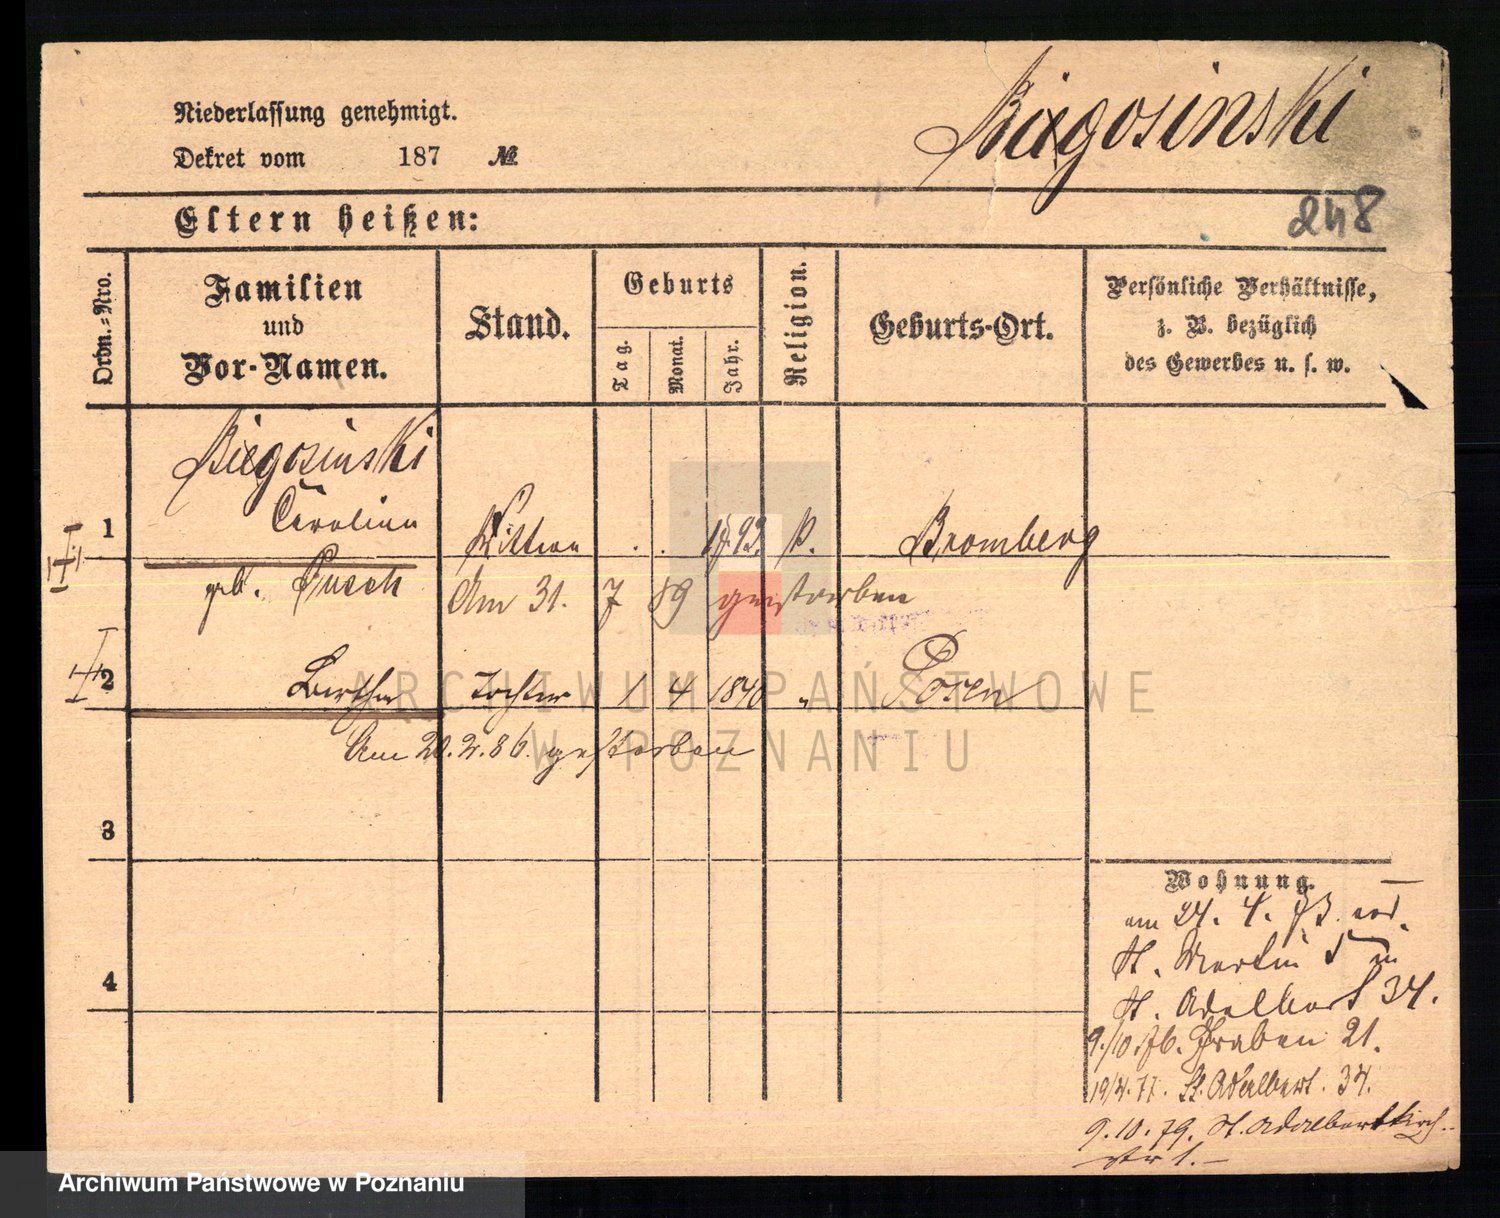 Niederlassung genehmigt.
Dekret vom 187 №
Biegosinski
248
Eltern heißen:
Ordn.-Nro.
Familien
und
Vor-Namen.
Stand.
Geburts
Tag.
Monat.
Jahr.
Religion.
Geburts-Ort.
Persönliche Verhältnisse,
z. B. bezüglich
des Gewerbes u. s. w.
Biegosinski
1 Caroline Wittwe . . 1792. P. Bromberg
geb. Busch
Am 31. 7 89 gestorben
2 Bertha Tochter 1 4 1840 " Posen
Am 20.2.86. gestorben
3
4
Wohnung.
am 24. 4. 73 von
St. Martin 5 in
St. Adalbert 34.
9./10.76. Graben 21.
19/4.77. St. Adalbert. 34.
9.10.79. St. Adalbertkirch-
str 1.-
ARCHIWUM PAŃSTWOWE
W POZNANIU
Archiwum Państwowe w Poznaniu